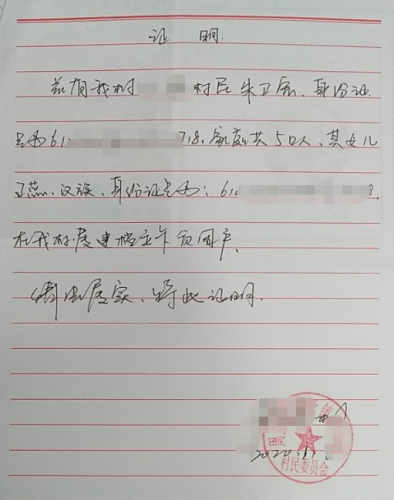 证 明
兹有我村 村民朱卫, 身份证
号为61 718, 家庭共5口人, 其女儿
燕, 汉族, 身份证号为: 61
在我村属建档立卡贫困户,
情况属实, 特此证明.
村民委员会